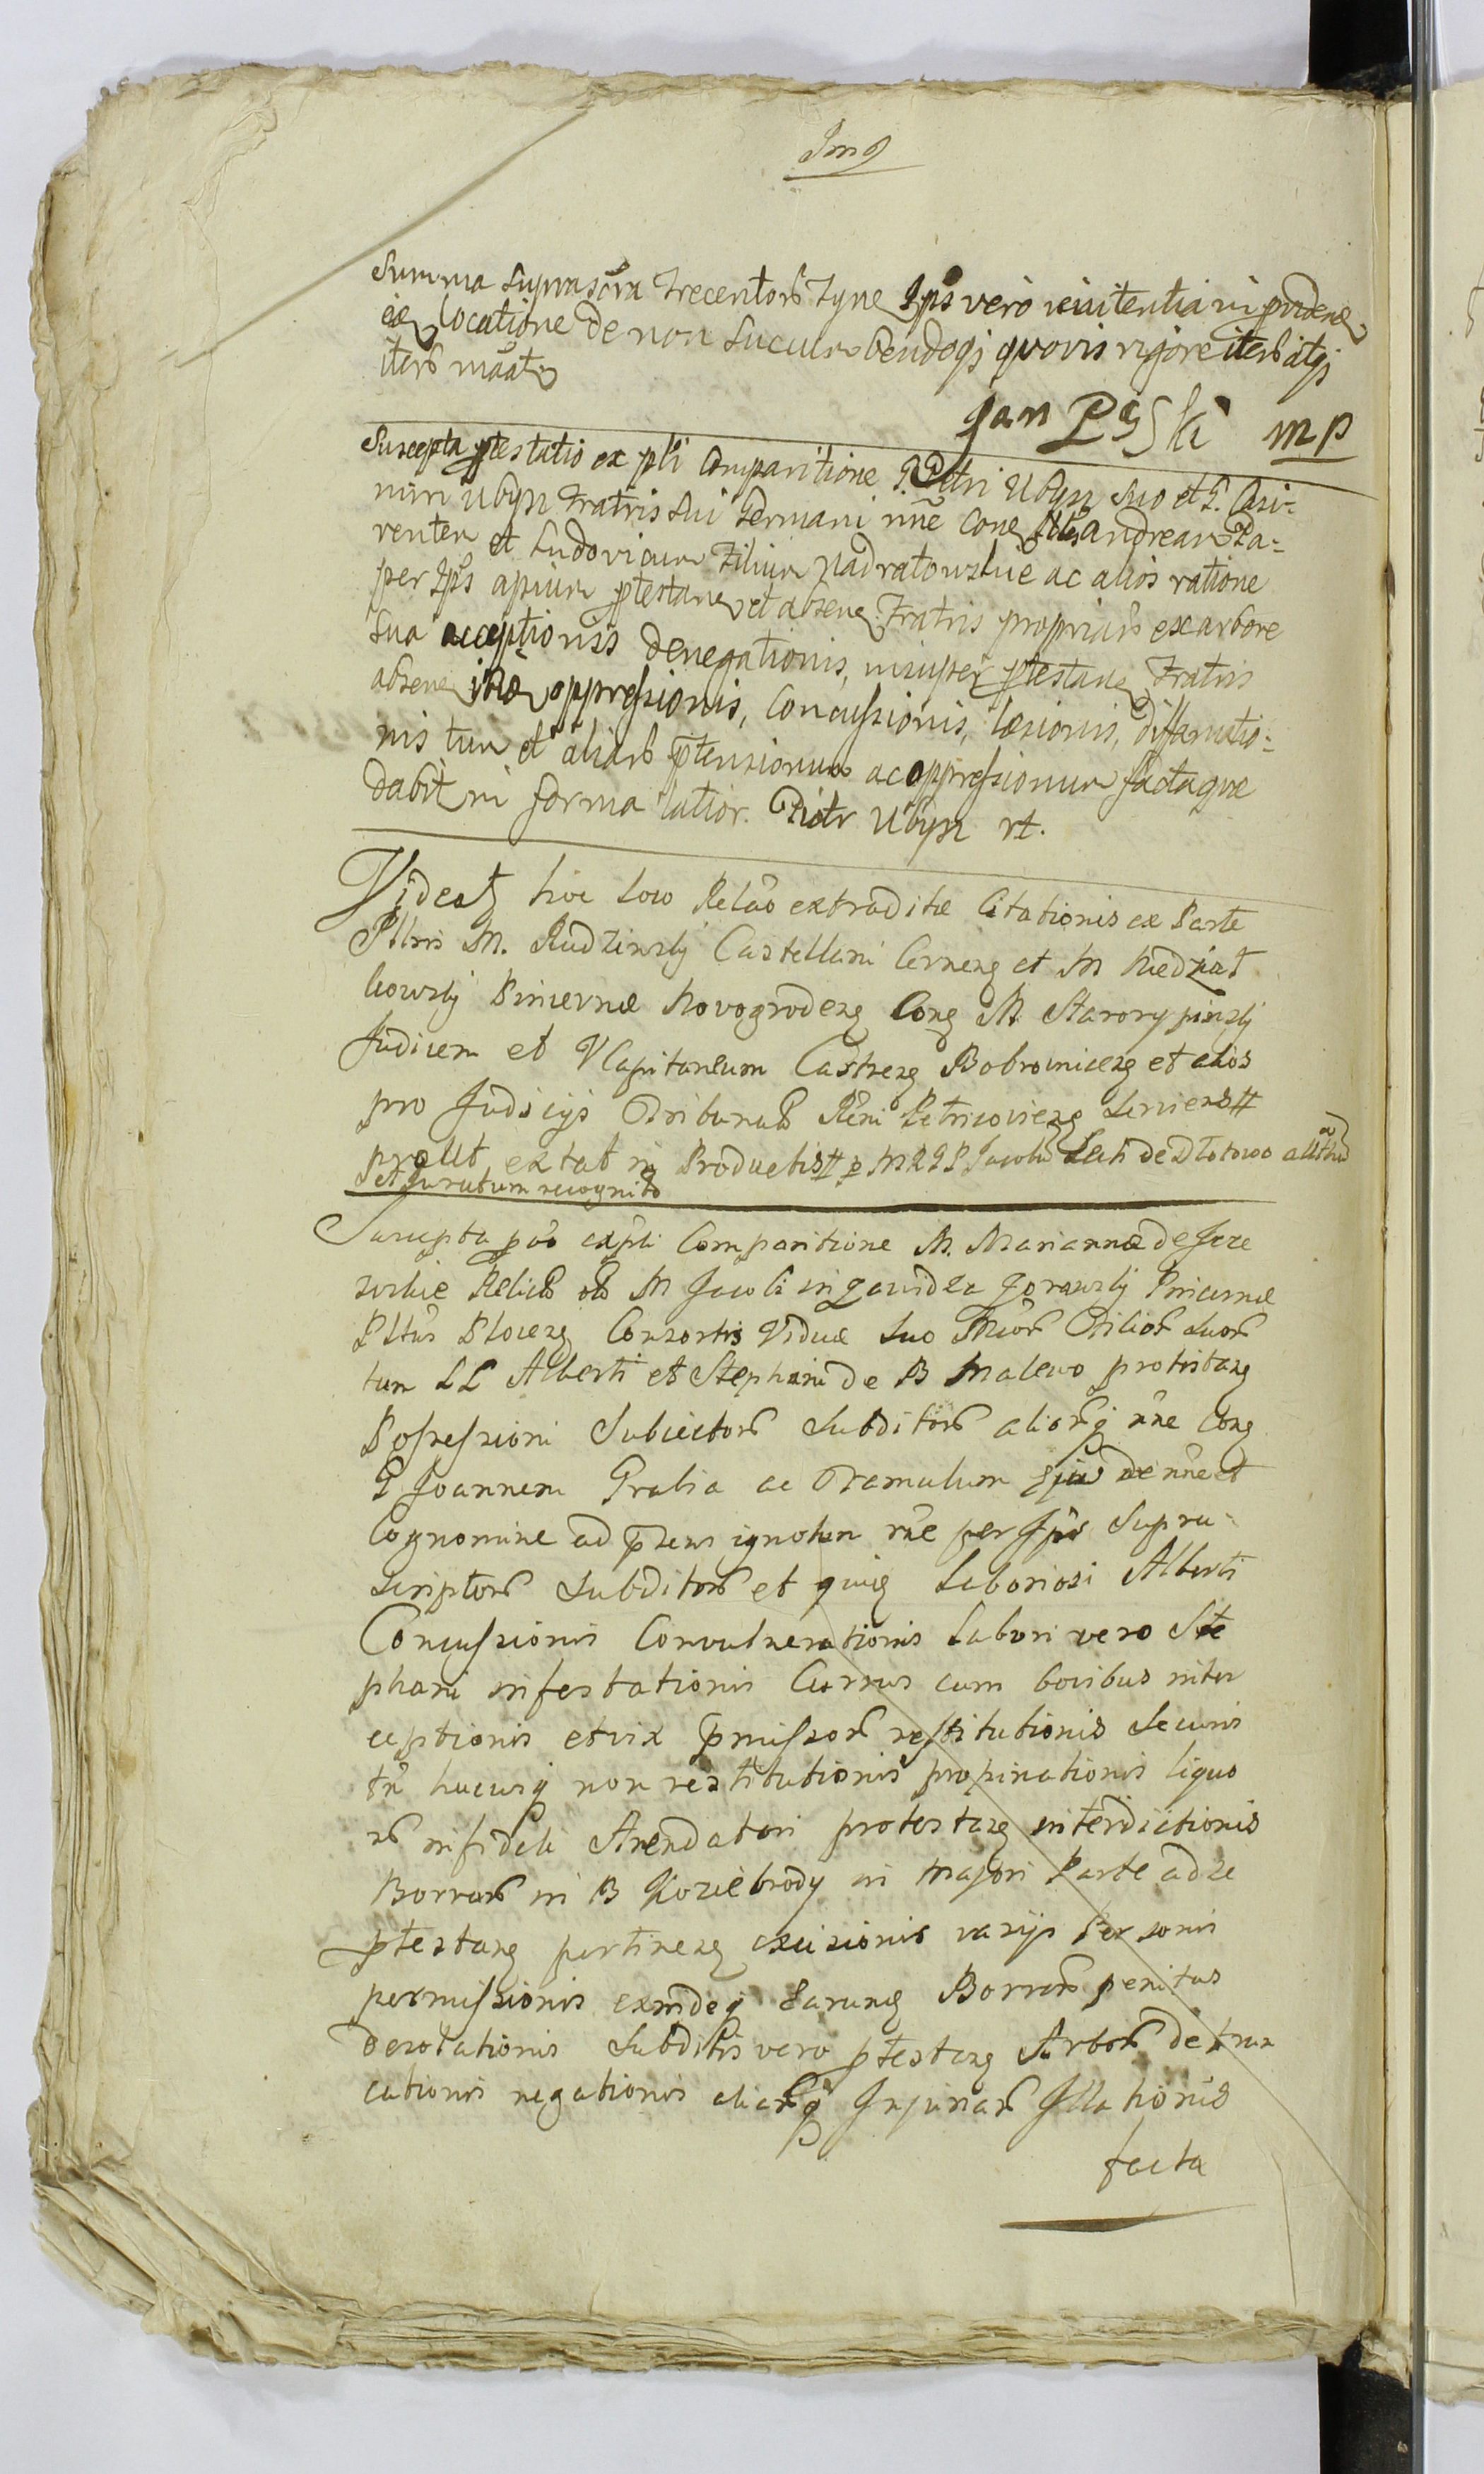 Summa suprascra trecentorb tyne Ips vero renitentia in prudene
ex locatione de non succumbendoqz quovis rigore iterb atqz
iterb maat
Jan PąSki mp
Suscepta ptestatio ex pli Comparitione G. Petri Ubysz suo et G. Casi-
miri Ubysz Fratris sui Germani nne cone Andream Pa-
rentem et Ludovicum Filium Nadratowskie ac alios ratione
per Ips apium ptestane et absene Fratris propriarb ex arbore
sua acceptionis denegationis, insuper ptestane Fratris
absene oppressionis, Concussionis, laesionis, diffamatio-
nis tum et aliarb ptensionum ac oppressionum factaque
dabit in forma latior. Piotr Ubysz rt.
Videatz hoc loco Relao extraditae Citationis ex Parte
Illris M. Rudzinsky Castellani Cernensz et M Niedziat
kowsky Pincernae Novogrodensz Conz M. Starorypinsky
Judicem et VCapitaneum Castrensz Bobrownicensz et alios
pro Judicijs Tribunals Rni Petricoviensz serviens #
prout extat in Productis # p M Jacobu Lech de Dłotowo
et Juratum recognito
Suscepta ex pli Comparitione M. Mariannae de Jeze
wskie Relictae M Jacobi in Zawidza Gorawsky Pincernae
Pltus Plocensz Consortis Viduae suo Filior suor
tum LL Alberti et Stephani de B Malewo protestansz
Possessioni Subiectorb Subditorb aliorqz nne Conz
G Joannem Gralia ac Famulum Ejus de nne et
Cognomine ad psens ignotum rne per Ips supra-
scriptorb Subditorb et quidz Laboriosi Alberti
Concussionis Convulnerationis Labori vero Ste
phani infestationis Currus cum bovibus inter
ceptionis et vix pmissorb restitutionis Securis
tn hucusqz non restitutionis propinationis liquo
rb infideli Arendatori protestansz interdictionis
Borrarb in B Koziebrody in Majori Parte ad se
ptestansz pertinensz excisionis varijs Personis
permissionis exindeqz earumdz Borrarb penitus
desolationis Subditis vero ptestansz Arborb detrun
cationis negationis aliarqz Injuriarb Illationis
facta